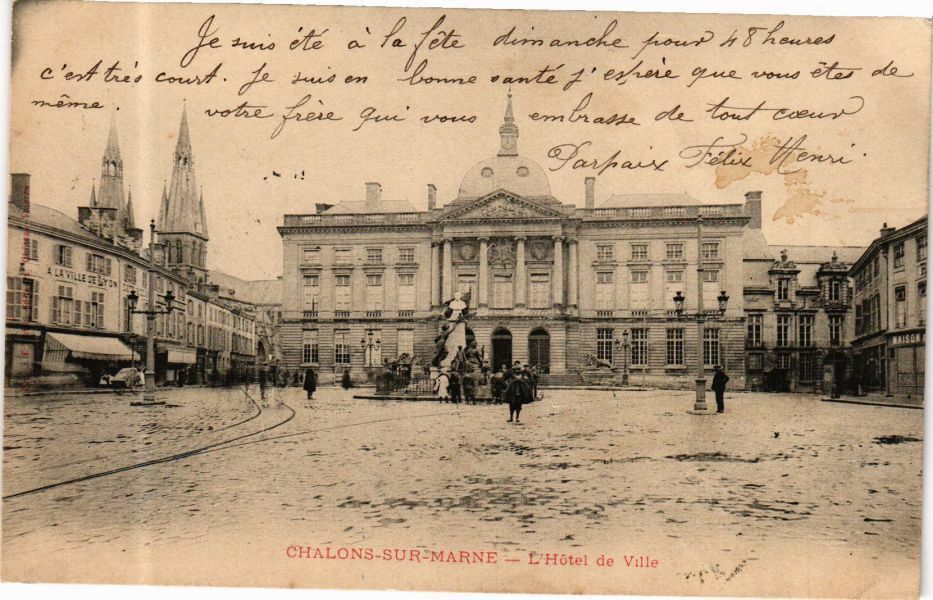 Je suis été à la fête dimanche pour 48 heures
c'est très court. Je suis en bonne santé j'espère que vous êtes de
même. votre frère qui vous embrasse de tout cœur
Parpaix Félix Henri.
A LA VILLE DE LYON
MAISON
CHALONS-SUR-MARNE — L'Hôtel de Ville